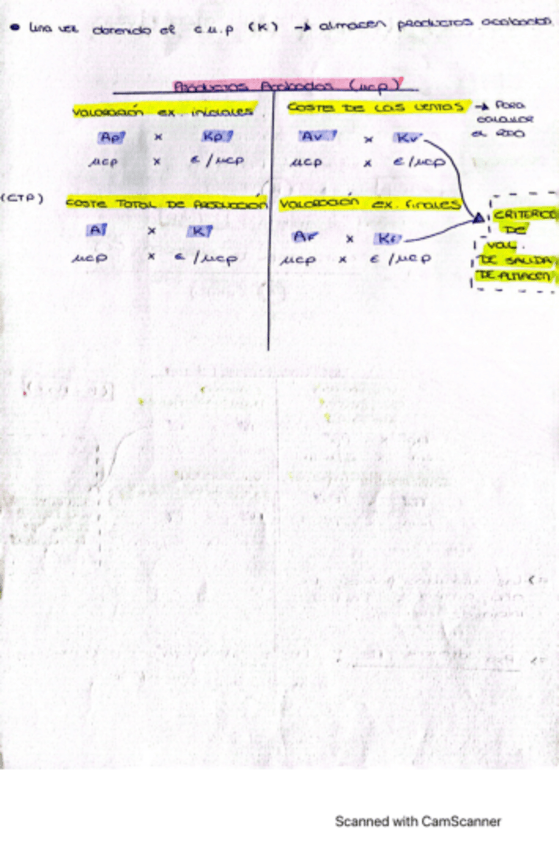 • Una vez obtenido el c.u.p (K) → almacén productos acabados.
Productos Acabados (ucp)
Valoración ex. iniciales
COSTE DE LAS VENTAS → PARA CALCULAR EL RDO
Ap x Kp
Av x Kv
ucp x €/ucp
ucp x €/ucp
(CTP) COSTE TOTAL DE PRODUCCION
VALORACION ex. finales
A x K
AF x KF
ucp x €/ucp
ucp x €/ucp
CRITERIOS
DE
VAL.
DE SALIDA
DE ALMACEN
Scanned with CamScanner